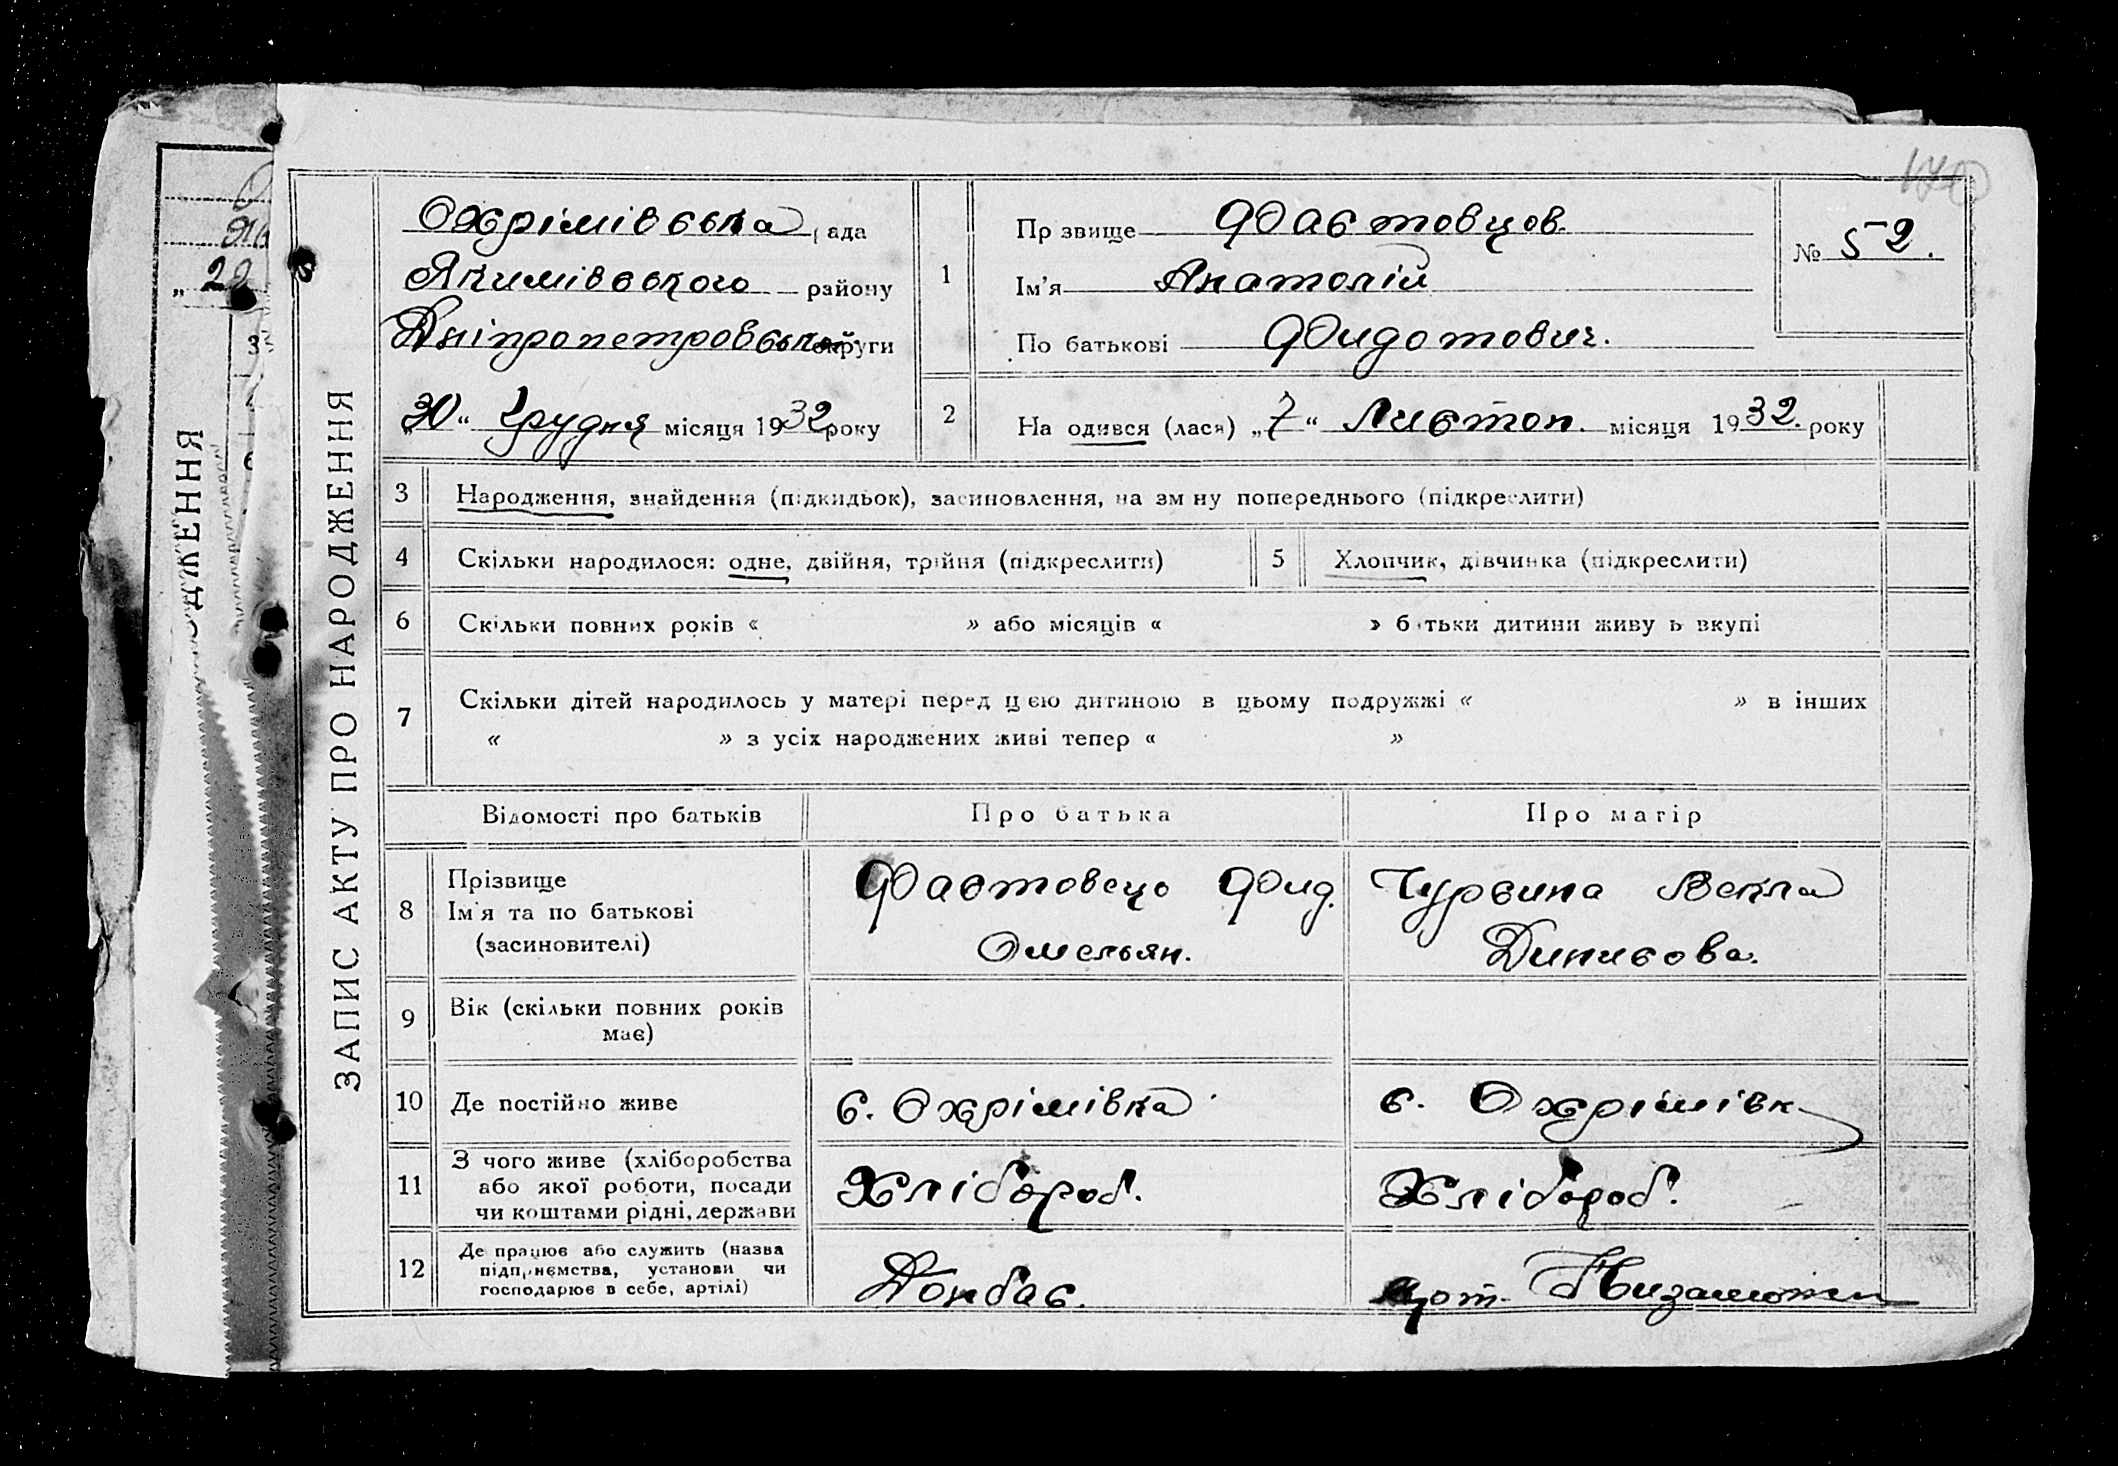 ЗАПИС АКТУ ПРО НАРОДЖЕННЯ
Охрімівська рада
Якимівського району
Дніпропетровська округи
„30“ Грудня місяця 1932 року
1
Прізвище Фастовцов
Ім'я Анатолій
По батькові Фидотович.
№ 52.
2
На одився (лася) „7“ Листоп. місяця 1932. року
3 Народження, знайдення (підкидьок), засиновлення, на зм ну попереднього (підкреслити)
4 Скільки народилося: одне, двійня, трійня (підкреслити)
5 Хлопчик, дівчинка (підкреслити)
6 Скільки повних років « » або місяців « » батьки дитини живу ь вкупі
7 Скільки дітей народилось у матері перед цією дитиною в цьому подружжі « » в інших
« » з усіх народжених живі тепер « »
Відомості про батьків Про батька Про матір
8 Прізвище
Ім'я та по батькові
(засиновителі)
Фастовець Фид.
Омельян.
Гурсина Векла
Динисова.
9 Вік (скільки повних років
має)
10 Де постійно живе с. Охрімівка с. Охрімівк
11 З чого живе (хліборобства
або якої роботи, посади
чи коштами рідні, держави
Хлібороб. Хлібороб.
12 Де працює або служить (назва
підприємства, установи чи
господарює в себе, артілі)
Донбас.
арт. Незаможни
ДЖЕННЯ